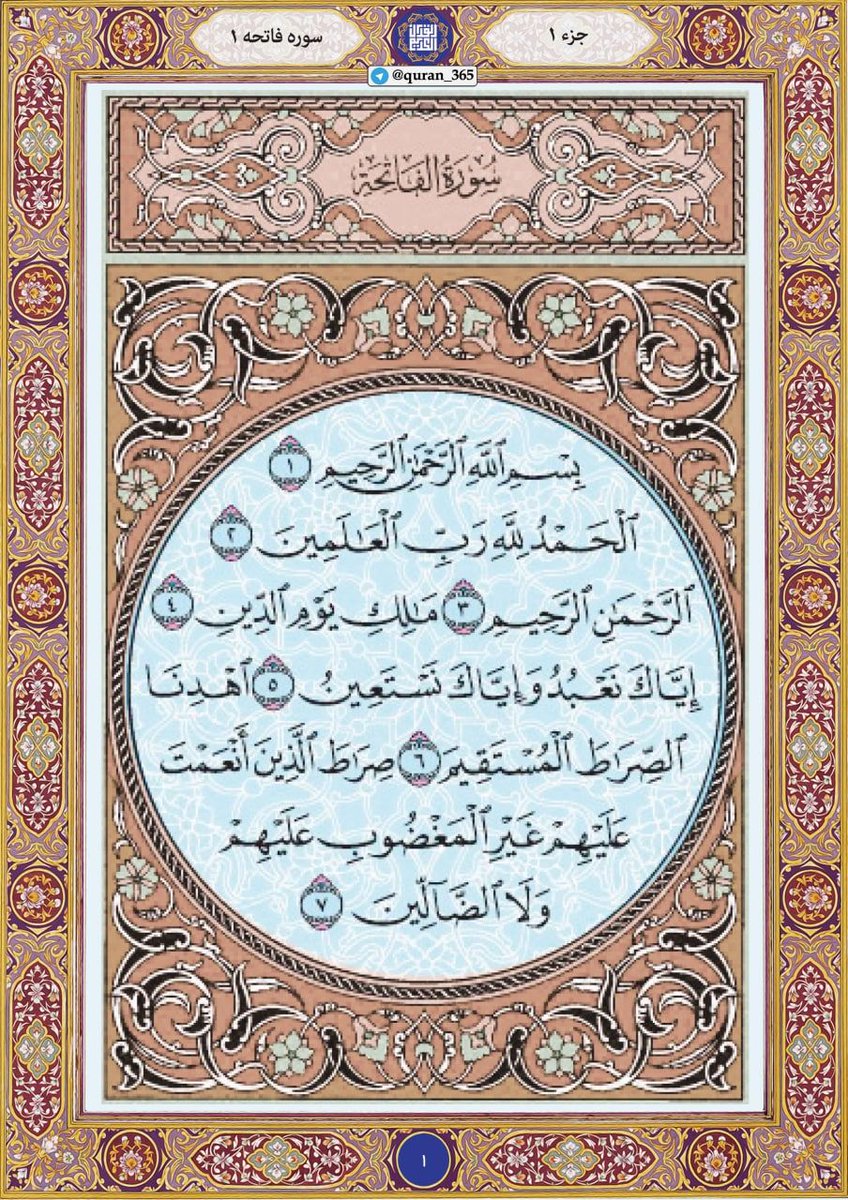 جزء ۱
سوره فاتحه ۱
@quran_365
سُورَةُ الْفَاتِحَةِ
بِسْمِ ٱللَّهِ ٱلرَّحْمَٰنِ ٱلرَّحِيمِ ١
ٱلْحَمْدُ لِلَّهِ رَبِّ ٱلْعَٰلَمِينَ ٢
ٱلرَّحْمَٰنِ ٱلرَّحِيمِ ٣ مَٰلِكِ يَوْمِ ٱلدِّينِ ٤
إِيَّاكَ نَعْبُدُ وَإِيَّاكَ نَسْتَعِينُ ٥ ٱهْدِنَا
ٱلصِّرَٰطَ ٱلْمُسْتَقِيمَ ٦ صِرَٰطَ ٱلَّذِينَ أَنْعَمْتَ
عَلَيْهِمْ غَيْرِ ٱلْمَغْضُوبِ عَلَيْهِمْ
وَلَا ٱلضَّآلِّينَ ٧
۱